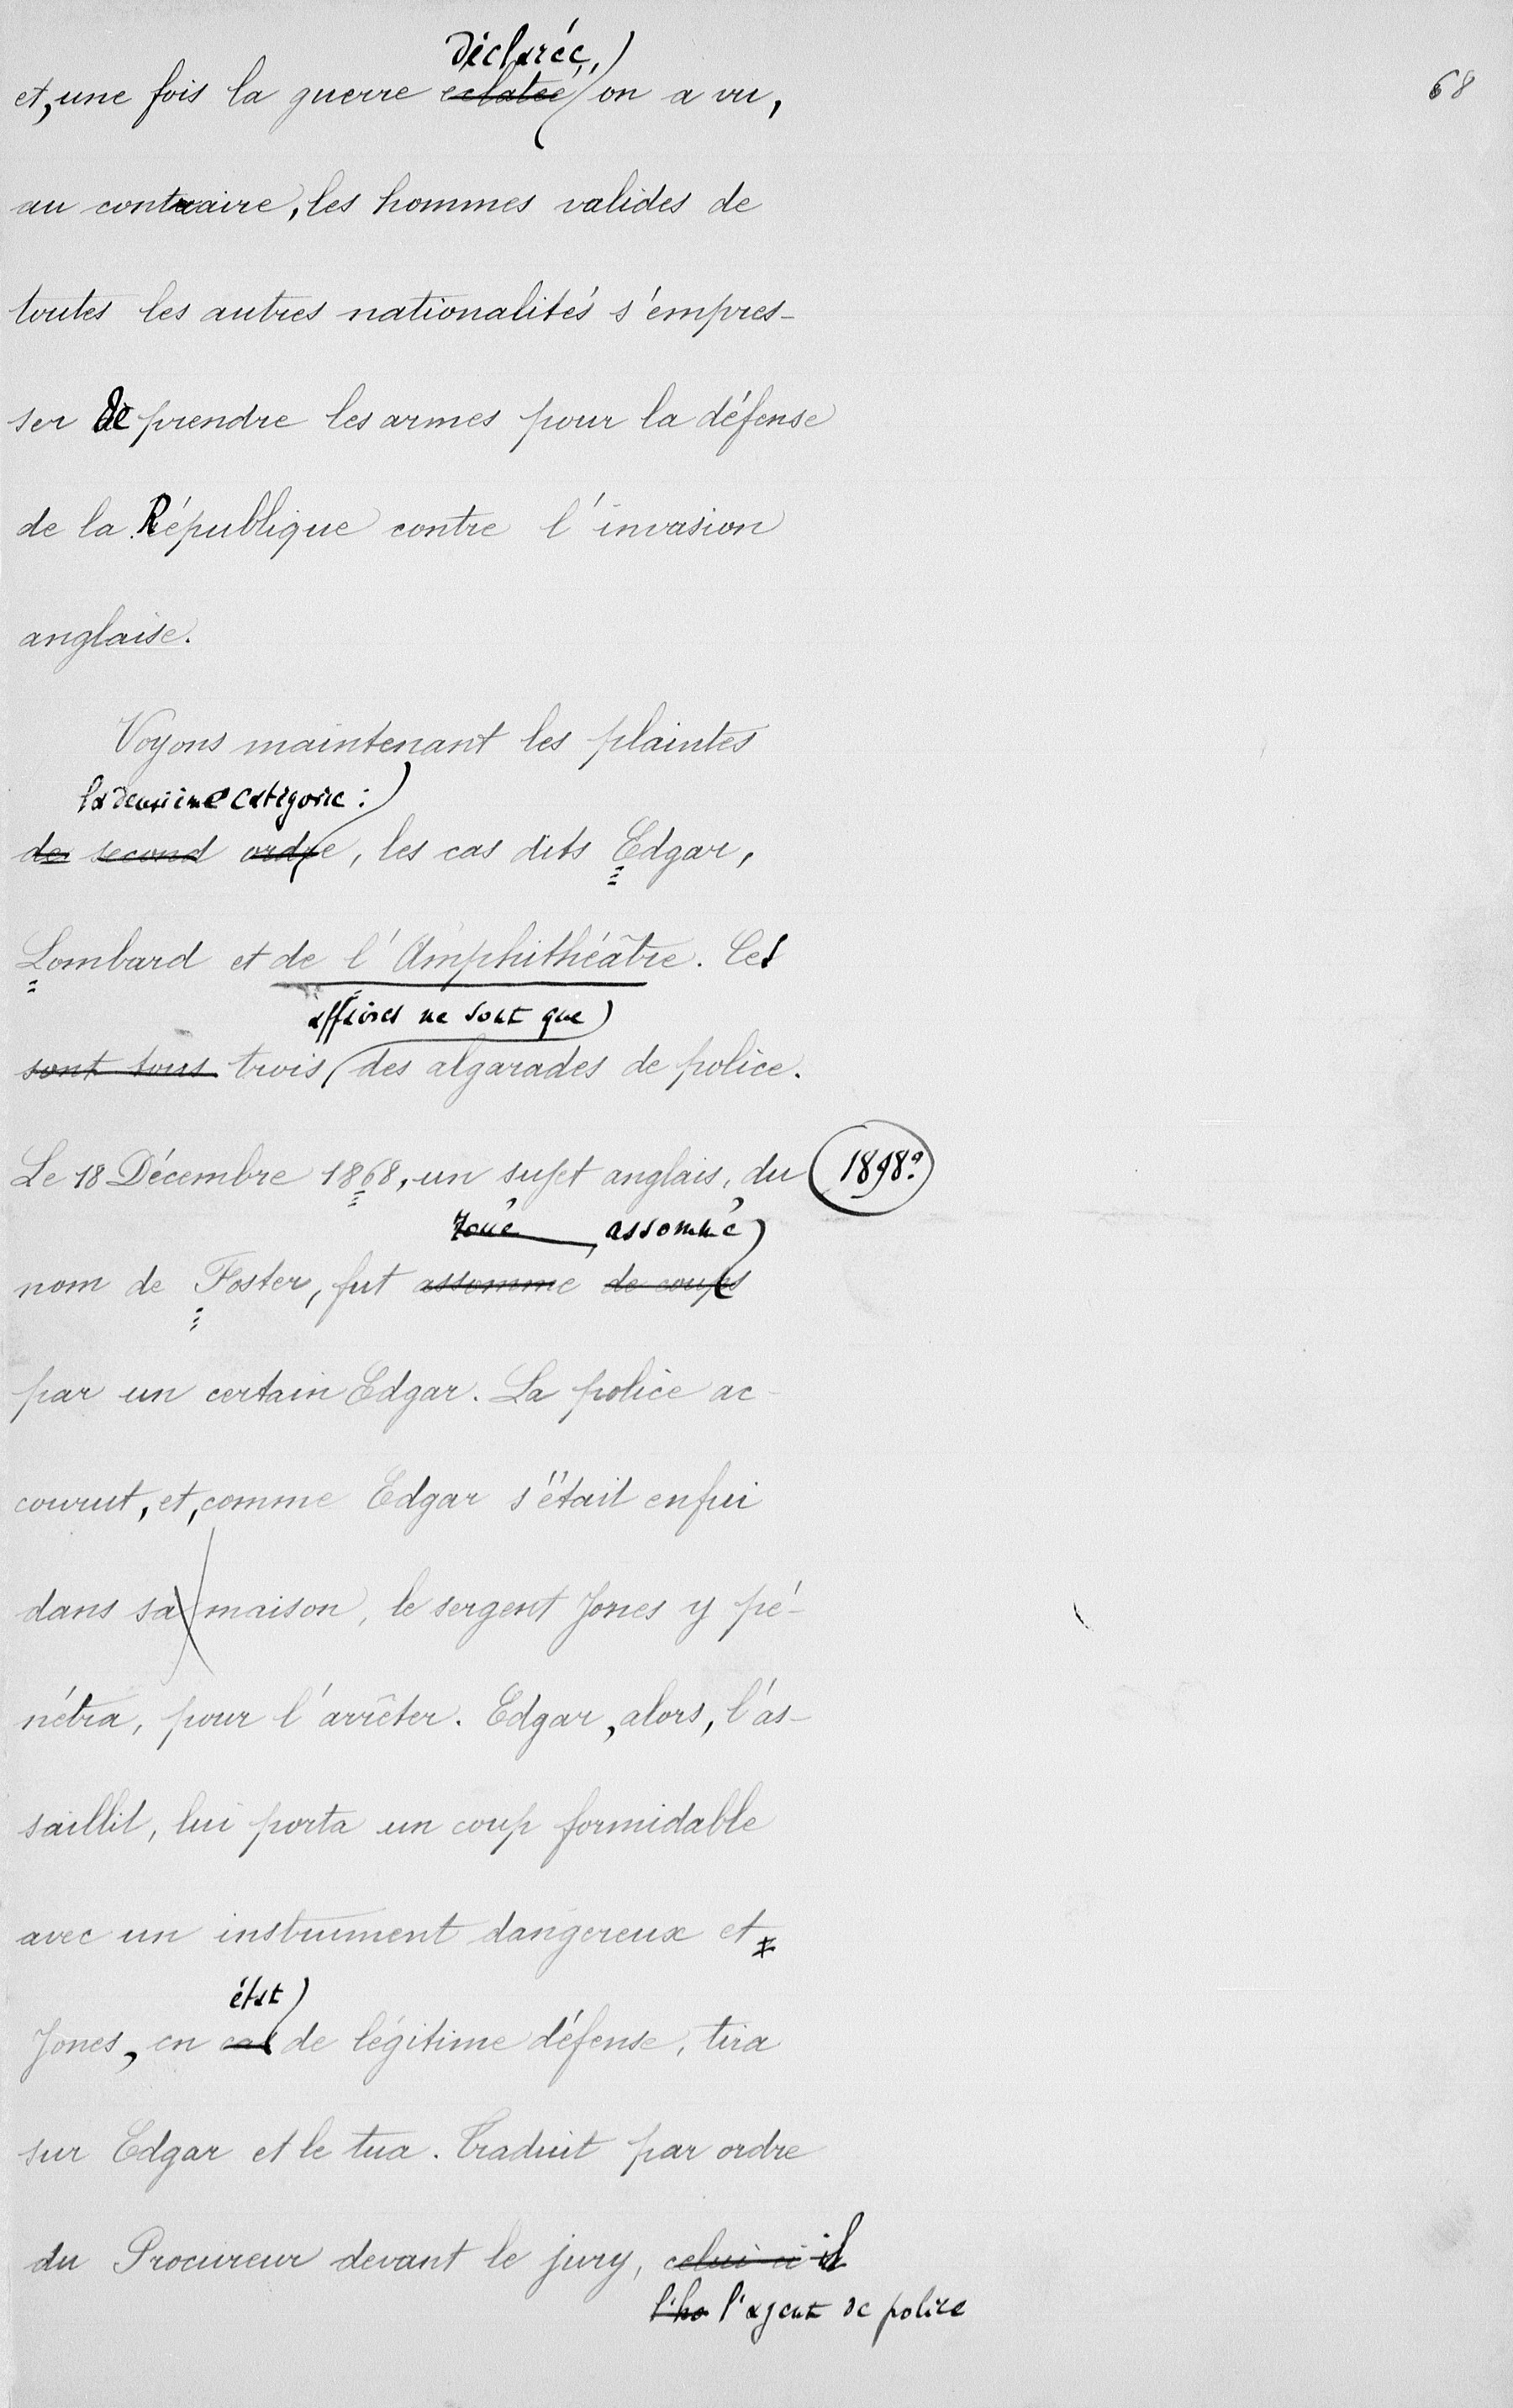 déclarée,
et, une fois la guerre eclatée on a vu,
68
au contraire, les hommes valides de
toutes les autres nationalités s'empres-
ser de prendre les armes pour la défense
de la République contre l'invasion
anglaise.
Voyons maintenant les plaintes
la deuxième catégorie :
de second ordre, les cas dits Edgar,
Lombard et de l'Amphithéâtre. Ces
affaires ne sont que
sont tous trois des algarades de police.
Le 18 Décembre 1868, un sujet anglais, du
1898?
roué assommé
nom de Foster, fut assomme de coups
par un certain Edgar. La police ac-
courut, et, comme Edgar s'était enfui
dans sa maison, le sergent Jones y pé-
nétra, pour l'arrêter. Edgar, alors, l'as-
saillit, lui porta un coup formidable
avec un instrument dangereux et
état
Jones, en cas de légitime défense, tira
sur Edgar et le tua. Traduit par ordre
du Procureur devant le jury, celui-ci il
l'ho l'agent de police